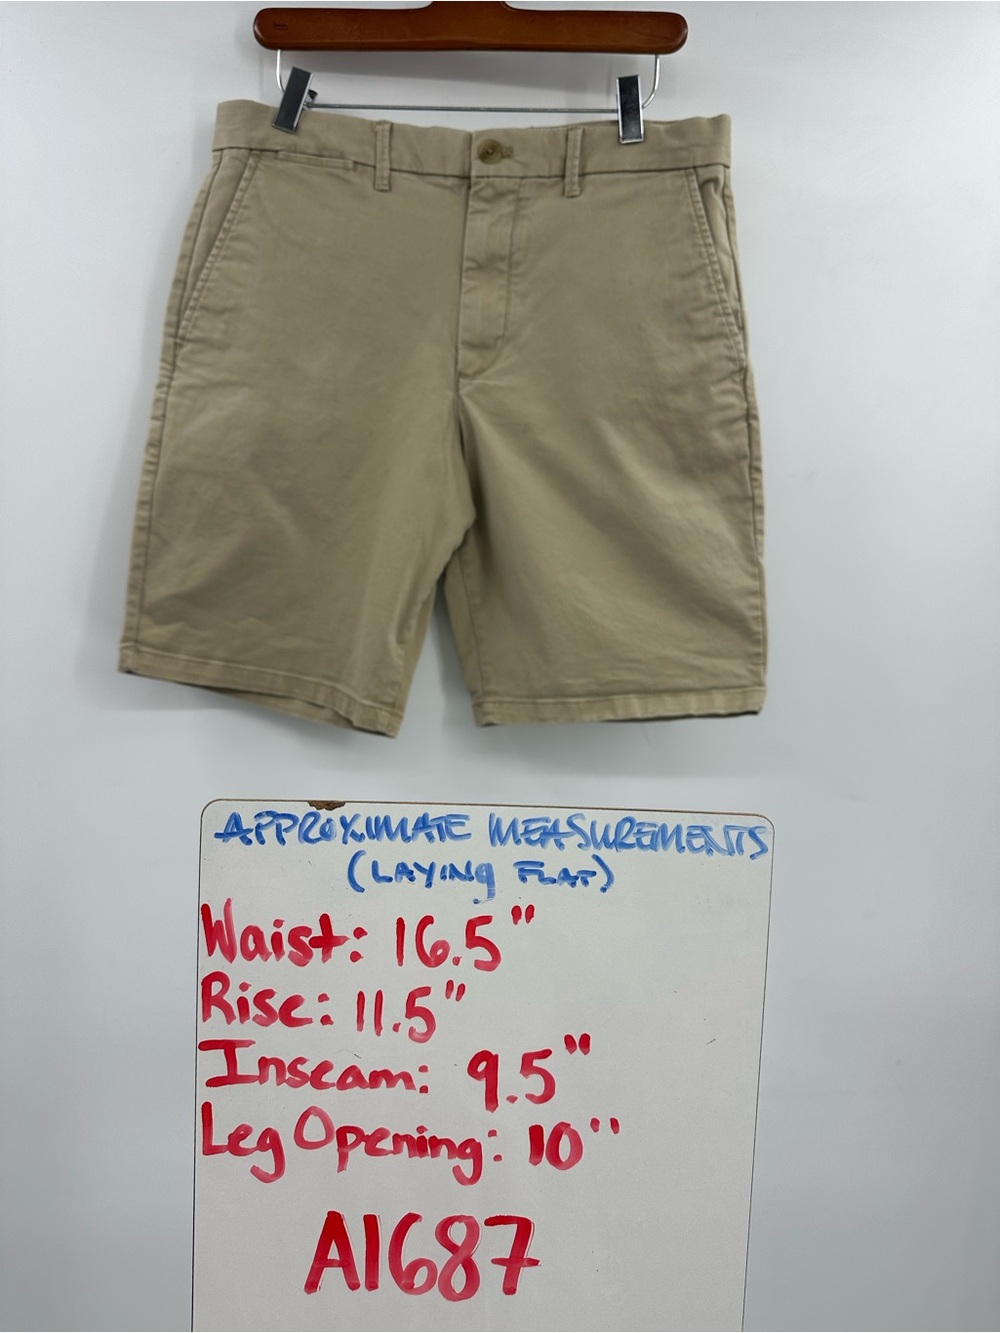 APPROXIMATE MEASUREMENTS
(LAYING FLAT)
Waist: 16.5"
Rise: 11.5"
Inseam: 9.5"
Leg Opening: 10"
A1687